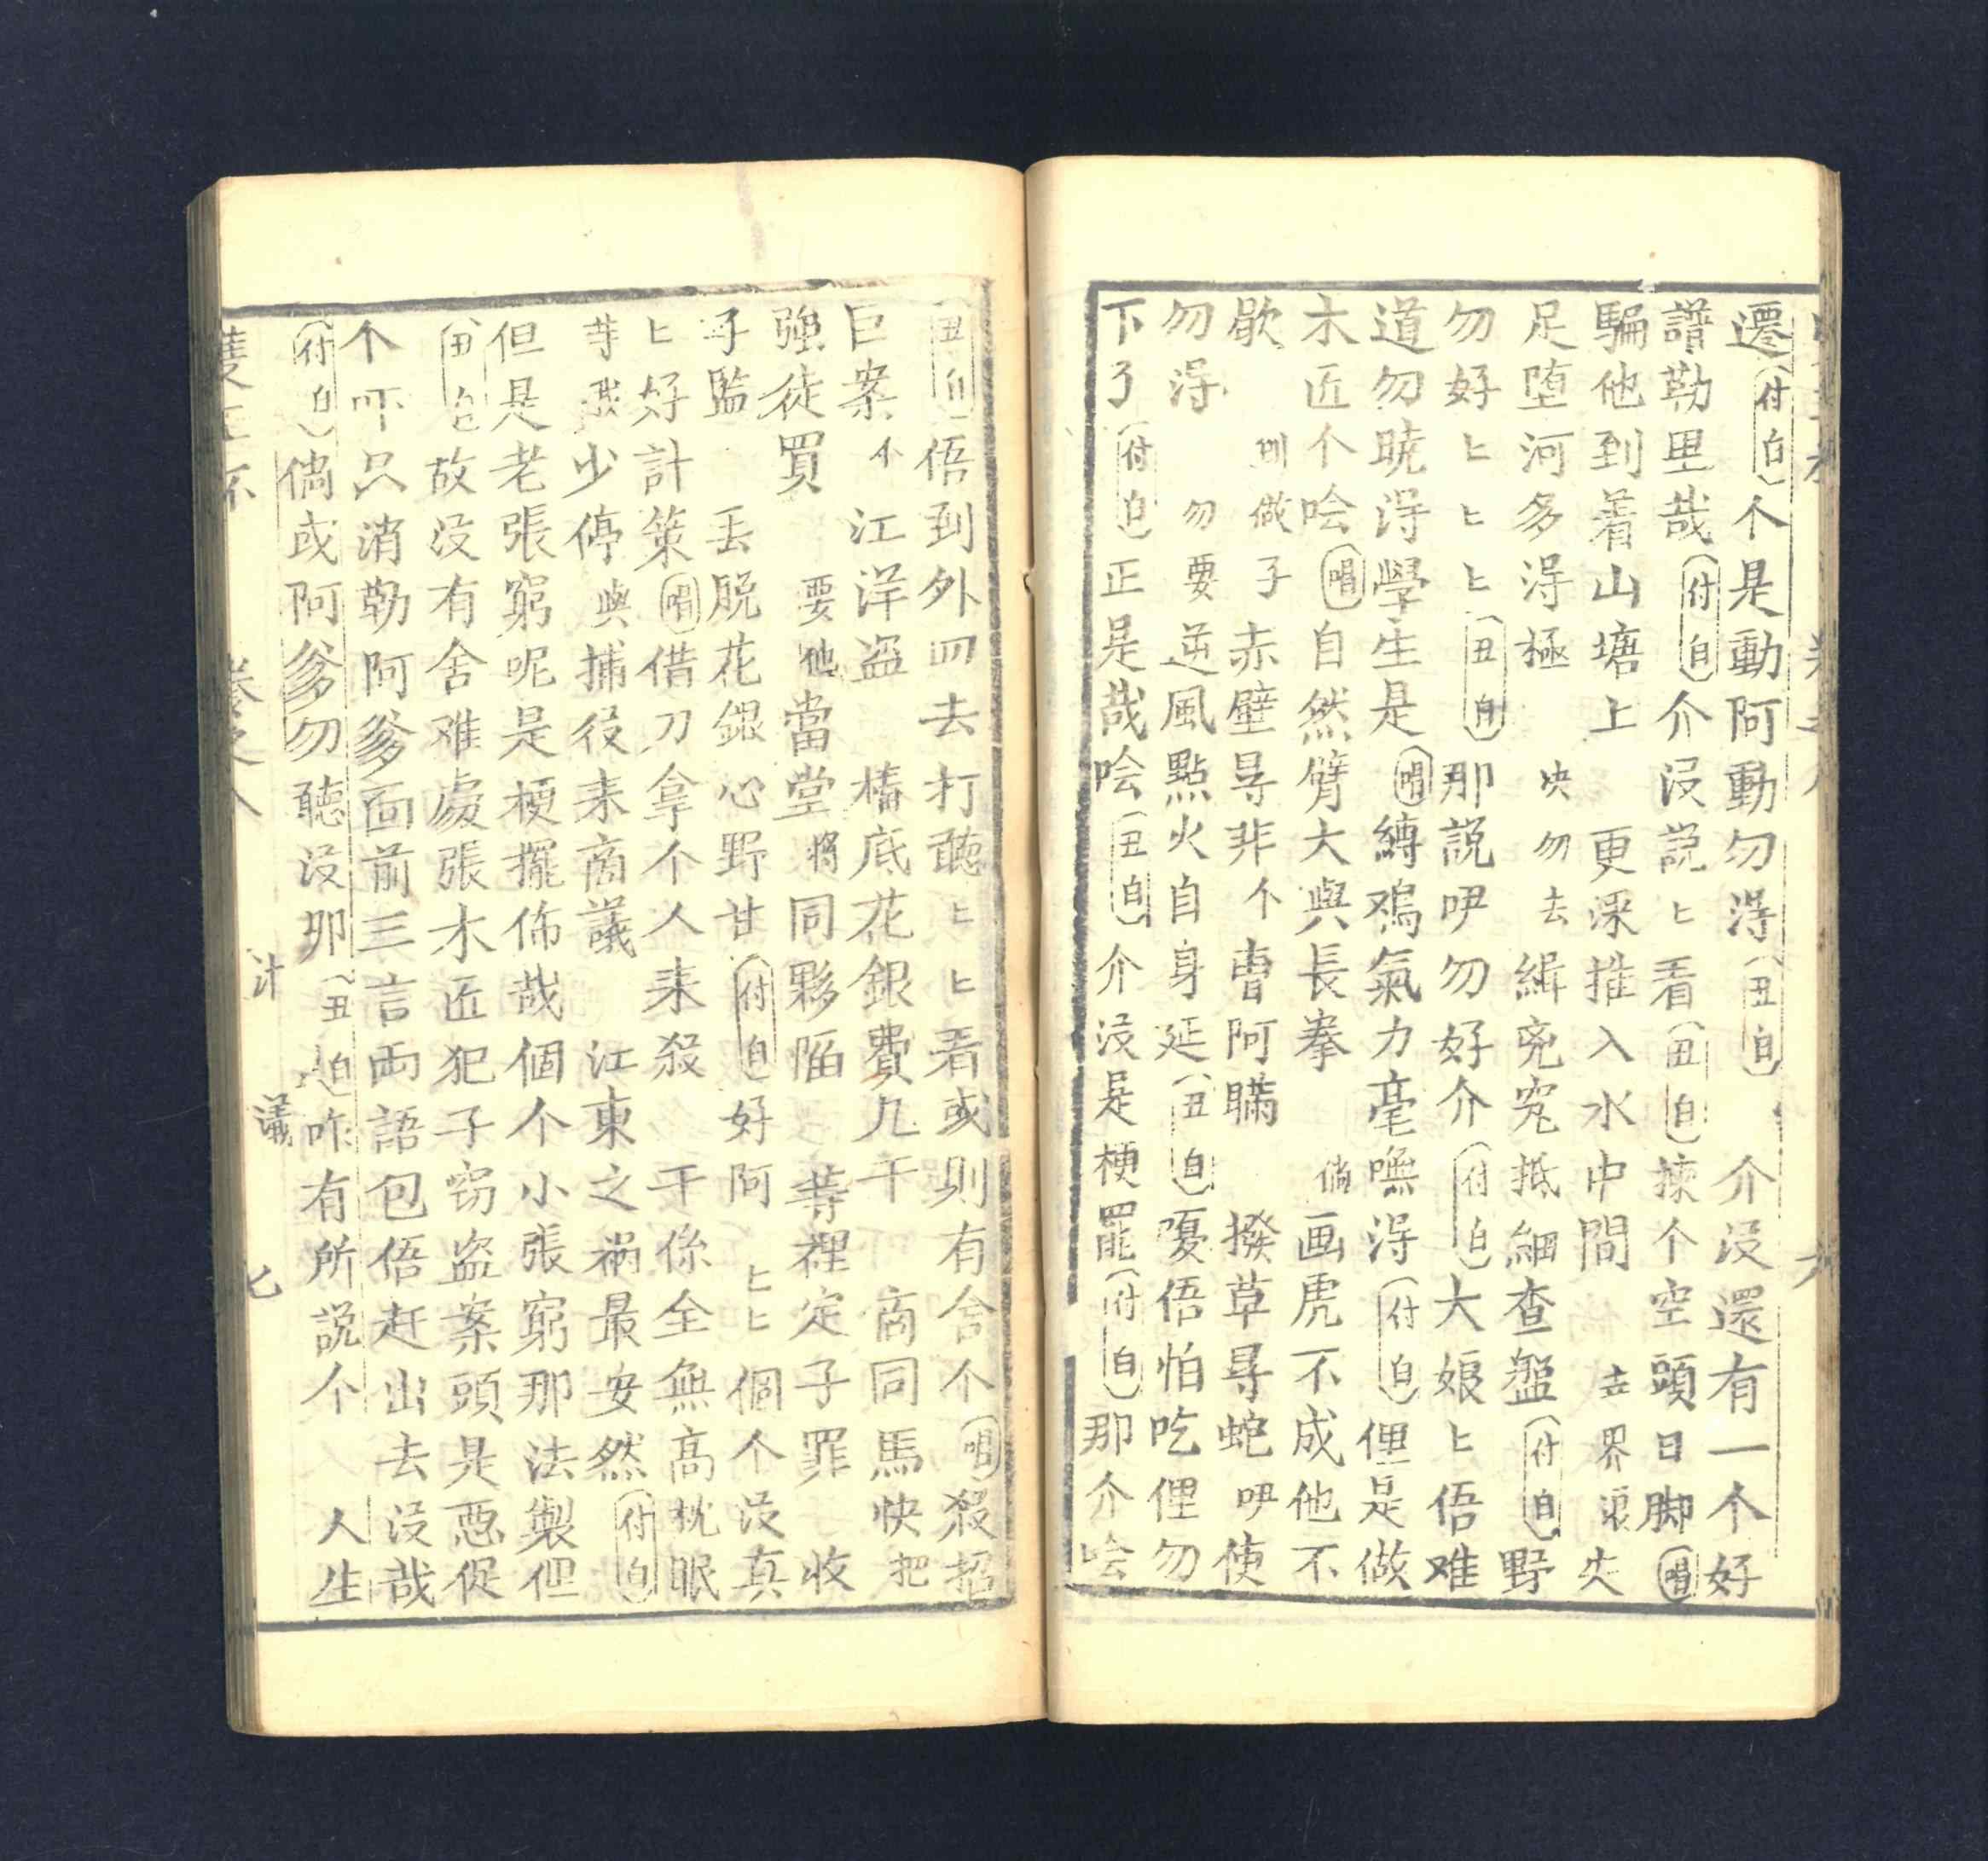 遷(付白)个是動阿動勿淂(丑白)介没還有一个好
譜勒里哉(付白)介没説匕看(丑白)揀个空頭日脚(唱)
騙他到着山塘上更深推入水中間去界浪失
足堕河多淂極决勿去緝兇究抵細查盤(付白)野
勿好匕匕匕(丑白)那説吚勿好介(付白)大娘匕俉难
道勿暁淂學生是(唱)縛鳮氣力毫嘸淂(付白)俚是做
木匠个唅(唱)自然臂大與長拳倘画虎不成他不
歇 做子赤壁㝷非个曺阿瞞撥草㝷蛇吚使
勿淂勿要逆風點火自身延(丑白)嗄俉怕吃俚勿
下了(付白)正是哉唅(丑白)介没是梗罷(付白)那介唅
(丑白)俉到外四去打聽匕匕看或則有舍个(唱)殺招
巨案个江洋盗樁底花銀費几千商同馬快把
強徒買要他當堂將同夥䧟等裡定子罪收
子監丢脱花銀心野甘(付白)好阿匕匕個个没真
匕好計策(唱)借刀拿个人耒殺干係全無高枕眠
少停與捕役耒商議江東之禍最安然(付白)
但是老張窮呢是梗擺佈哉個个小張窮那法製俚
(丑白)故没有舍难處張木匠犯子窃盗案頭是惡促
个吓只消勒阿爹面前三言両語包俉赶出去没哉
(付白)倘或阿爹勿聽没那(丑白)咋有所説个人生
卷之八 計議 七